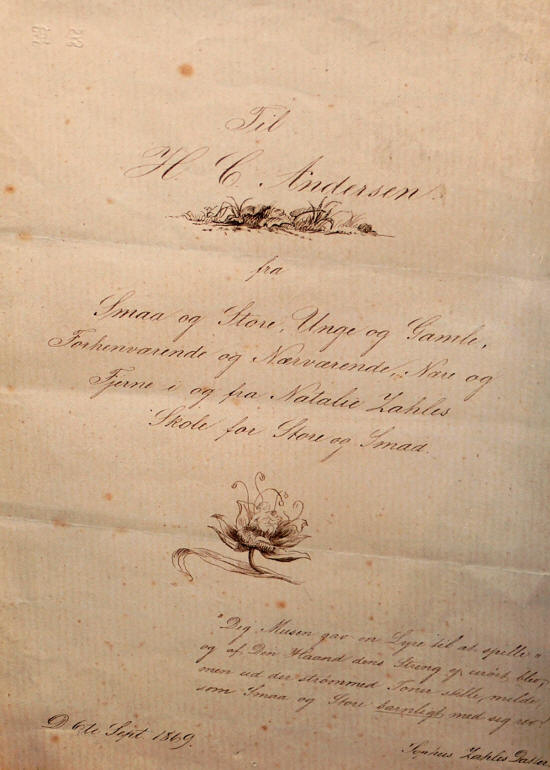 Til
H. C. Andersen.
fra
Smaa og Store, Unge og Gamle,
Forhenværende og Nærværende, Nære og
Fjerne i og fra Natalie Zahles
Skole for Store og Smaa.
"Dig Musen gav en Lyre til at spille"
og af Din Haand dens Streng ej urørt blev,
men ud der strømmed Toner stille, milde,
som Smaa og Store barnligt med sig rev!
D. 6te Sept. 1869.
Zahles